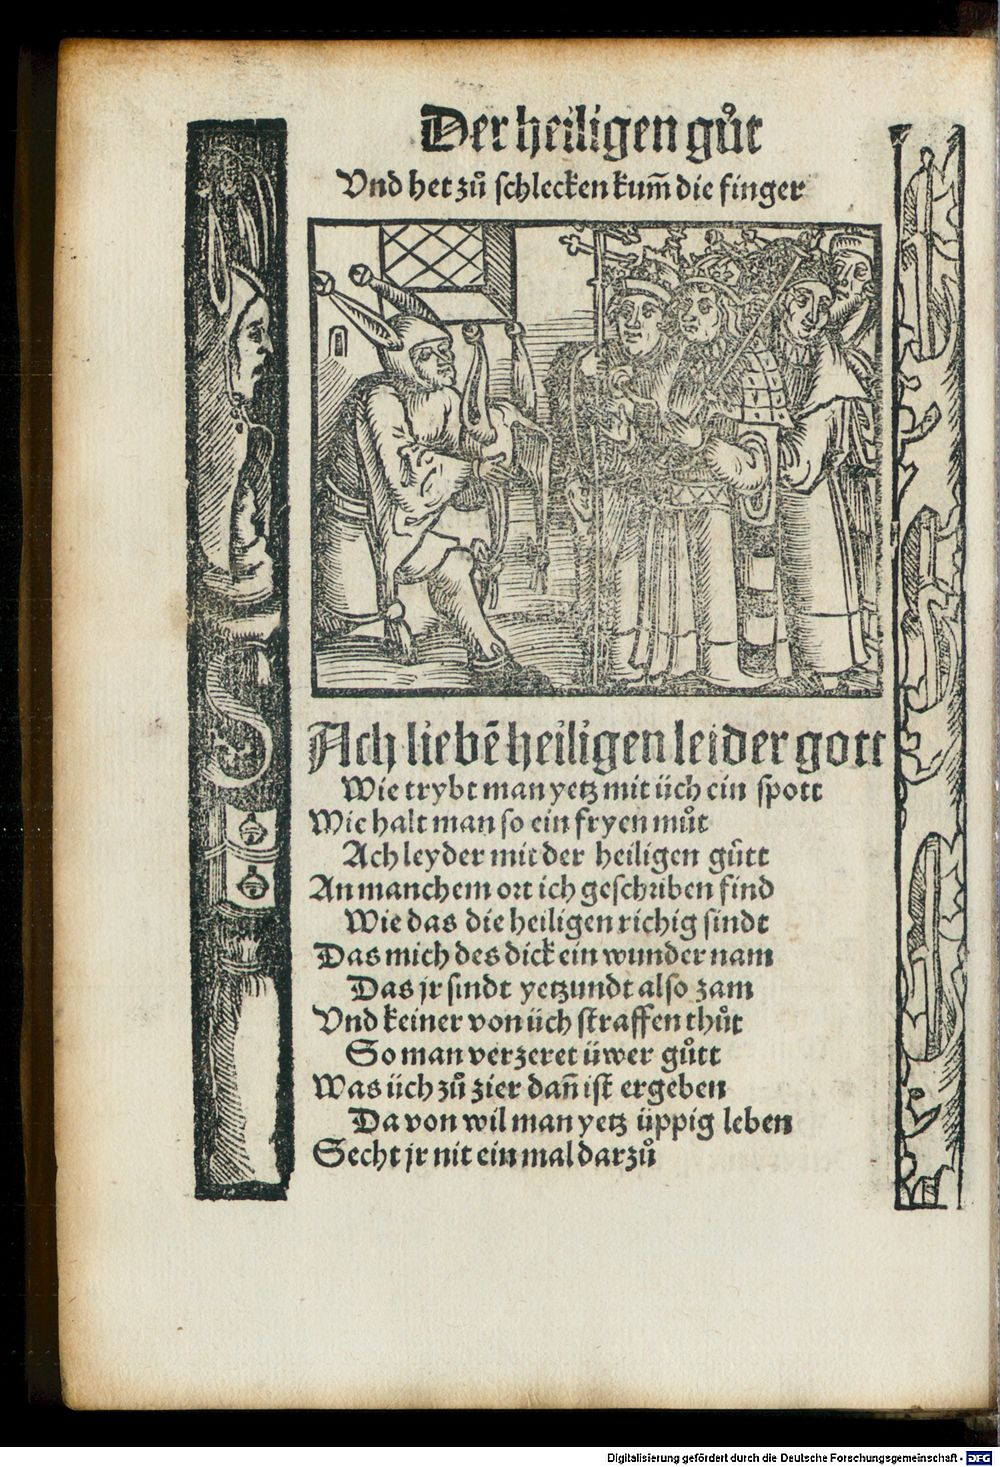 Der heiligen guͦt
Vnd het zuͦ ſchlecken kum̄ die finger
Ach liebē heiligen leider gott
Wie trybt man yetz mit üch ein ſpott
Wie halt man ſo ein fryen muͦt
Ach leyder mit der heiligen guͦtt
An manchem ort ich geſchriben find
Wie das die heiligen richig ſindt
Das mich des dick ein wunder nam
Das jr ſindt yetzundt alſo zam
Vnd keiner von üch ſtraffen thuͦt
So man verzeret üwer guͦtt
Was üch zuͦ zier dan̄ iſt ergeben
Da von wil man yetz üppig leben
Secht jr nit ein mal darzuͦ
Digitalisierung gefördert durch die Deutsche Forschungsgemeinschaft - DFG